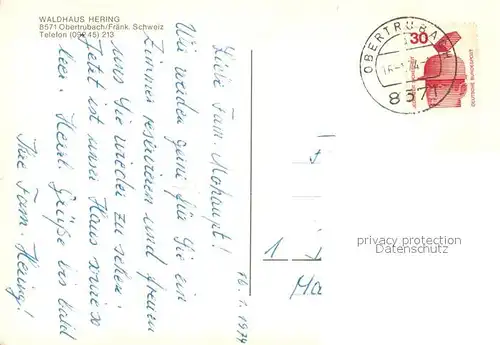 WALDHAUS HERING
8571 Obertrubach/Fränk. Schweiz
Telefon (092 45) 213
16. 1. 1974
Liebe Fam. Mohaupt!
Wir werden gerne für Sie ein
Zimmer reservieren und freuen
uns Sie wieder zu sehen.
Jetzt ist unser Haus
leer. Herzl. Grüße bis bald
Ihre Fam. Hering!
OBERTRUBA
8571
30
DEUTSCHE BUNDESPOST
1
Ma
privacy protection
Datenschutz